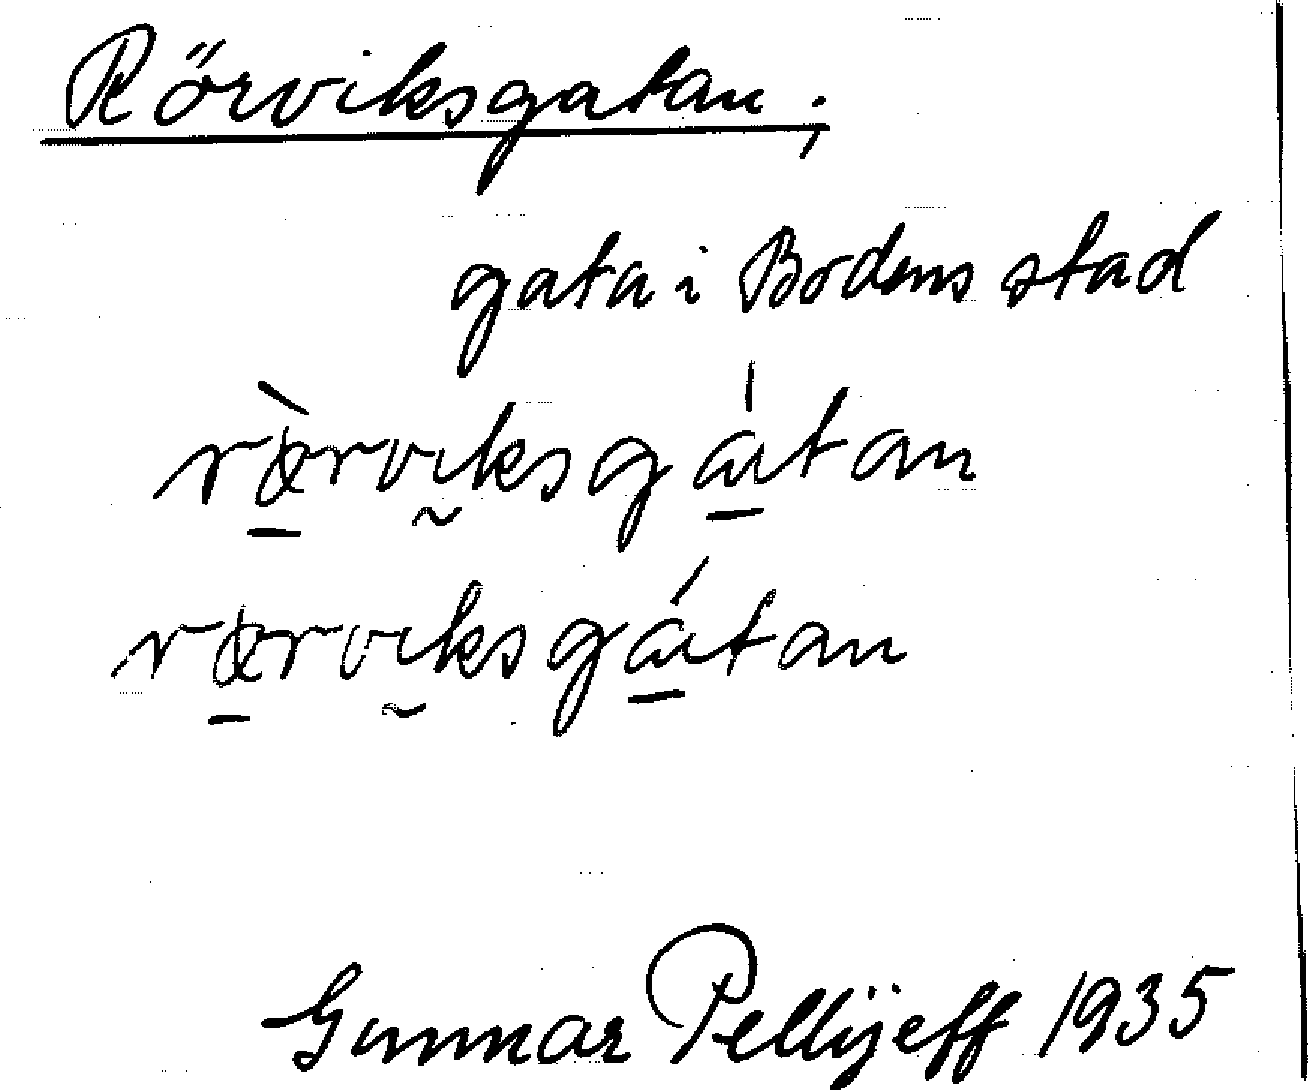 Rörviksgatan;
gata i Bodens stad
rö̀rviksgátan
rörviksgátan
Gunnar Pellijeff 1935